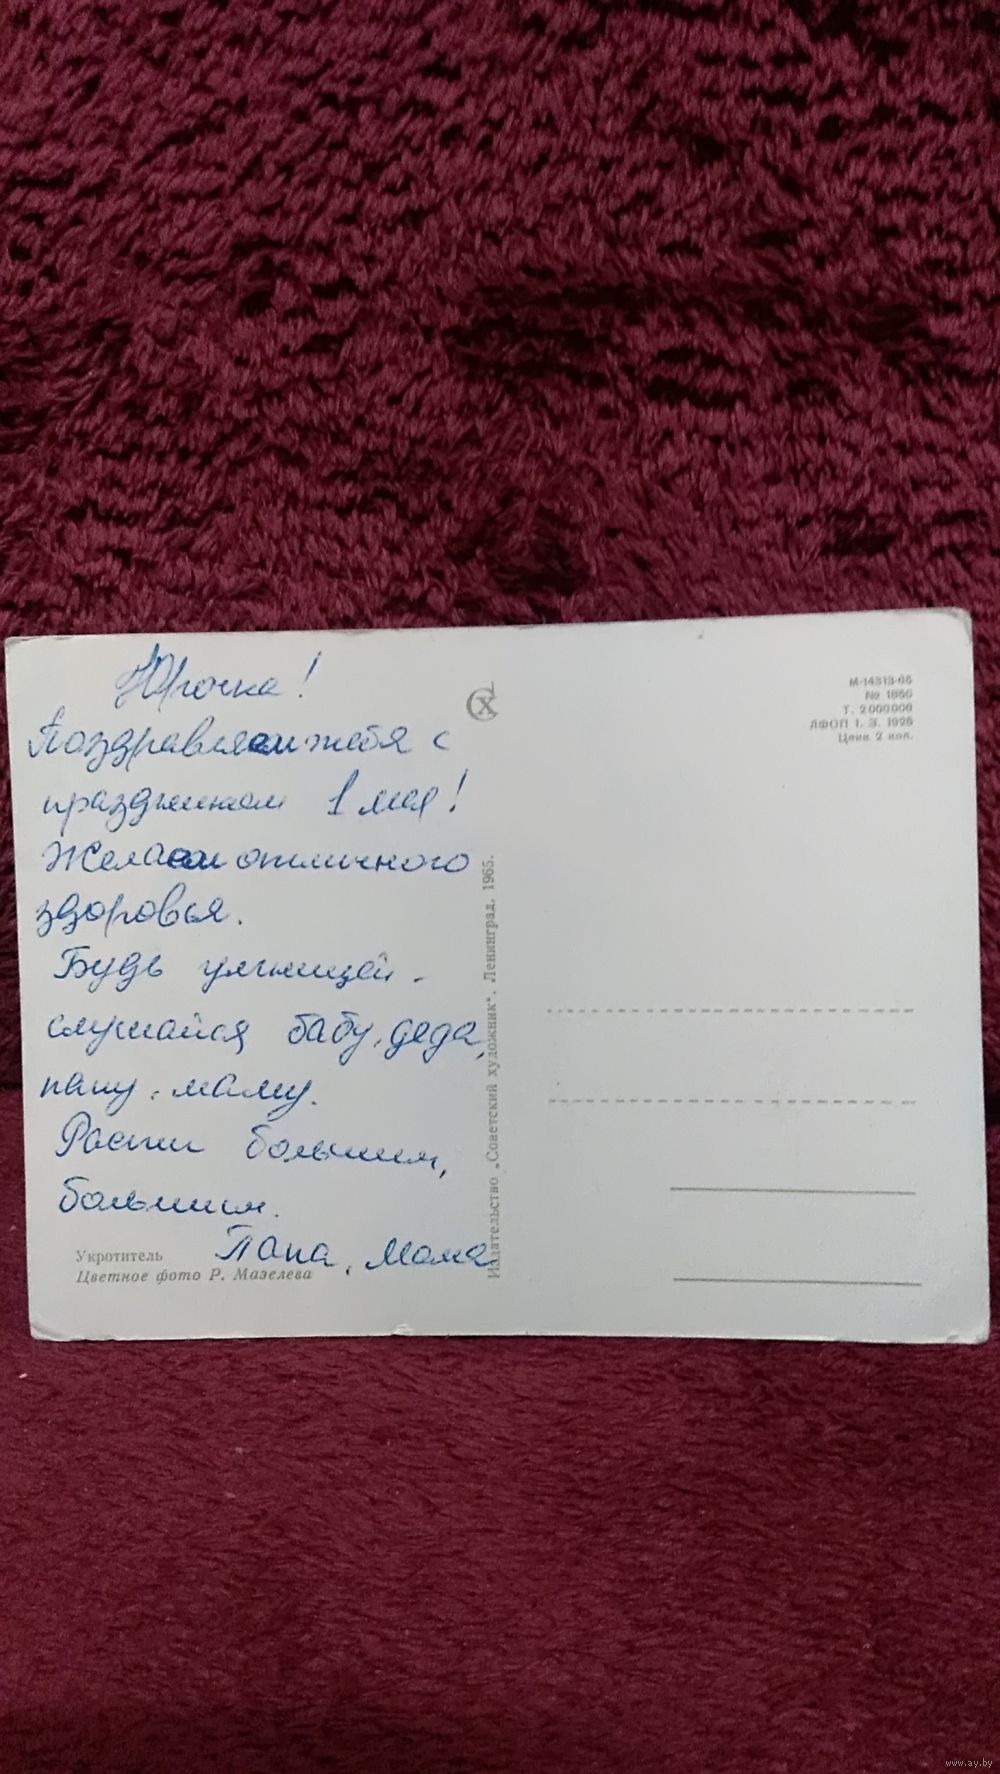 Юрочка!
Поздравляем тебя с
праздником 1 мая!
Желаем отличного
здоровья.
Будь умницей.
слушайся бабу, деда,
папу, маму.
Расти большим,
большим.
Папа, мама
Укротитель
Цветное фото Р. Мазелева
Издательство „Советский художник". Ленинград. 1965.
СХ
М-14313-65
№ 1856
Т. 2 000 000
ЛФОП 1. З. 1926
Цена 2 коп.
www.ay.by